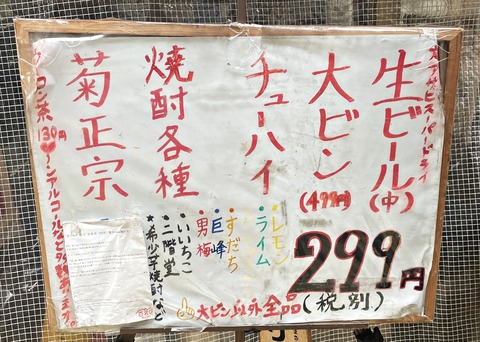 大アサヒスーパードライ
生ビール(中)
大ビン(499円)
チューハイ
・レモン
・ライム
・すだち
・巨峰
・男梅
焼酎各種
・いいちこ
★二階堂
★希少芋焼酎など
菊正宗
ウーロン茶130円
ノンアルコールなど多数あります。
299円
(税別)
大ビン以外全品